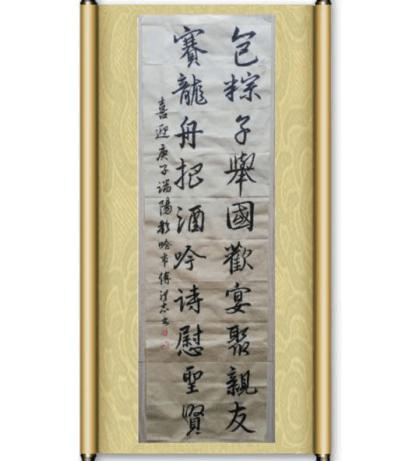 包粽子舉國歡宴聚親友
賽龍舟把酒吟诗慰聖賢
喜迎庚子端陽